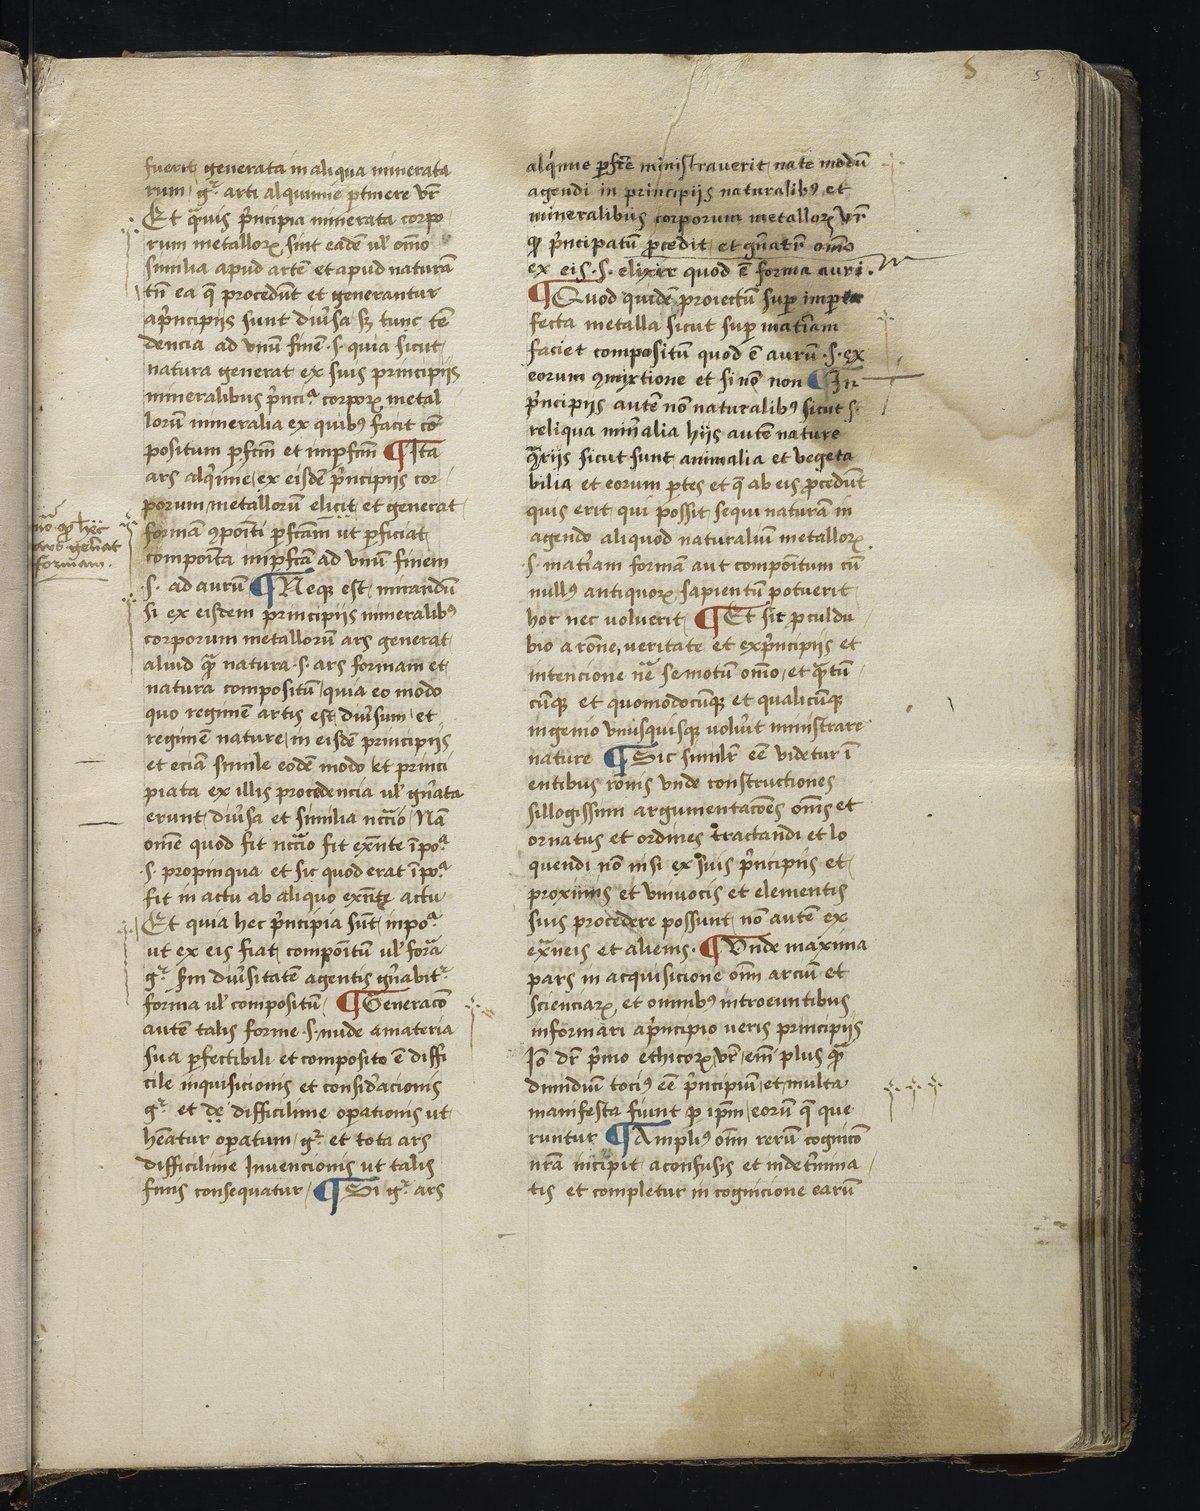 5
5
fuerit generata in aliqua minerata
rum / gͬ. arti alquimie ꝑtinere vr̄
Et qᷓuis p̄ncipia minerata corpo
rum metalloꝝ sint eadē ul̓ om̄o
similia apud artē et apud naturā
tn̄ ea q̄ procedūt et generantur
ap̄ncipiis sunt diūsa sꝫ tunc tē
dencia ad vnū finē .s. quia sicut
natura generat ex suis principijs
mineralibus p̄nciᵃ. corporꝝ metal
lorū mineralia ex quibꝰ facit cō
positum ꝑfc̄m et imꝑfc̄m ¶ Ita
ars alq̓mie / ex eisdē p̄ncipiis cor
porum / metallorū elicit et generat
formā ꝯpoīti ꝑfc̄am ut ꝑficiat
componīta imꝑfc̄a ad vnum finem
.s. ad aurū ¶ Neqꝫ est / mirandū
si ex eisdem principijs mineralibꝰ
corporum metallorū ars generat
aliud qᷓ natura .s. ars formam et
natura compositū / quia eo modo
quo regimē artis est diūsum et
regimē nature / in eisdē principijs
et eciā simile eodē modo et princi
piata ex illis procedencia ul̓ gn̄ata
erunt diūsa et similia nc̄cio / Nā
om̄e quod fit nc̄cio fit exn̄te ī poᵃ.
.s. propinqua et sic quod erat ī poᵃ.
fit in actu ab aliquo exn̄te actu
Et quia hec p̄ncipia sūt in poᵃ.
ut ex eis fiat componītū ul̓ forᷓa
gͬ. ẜm diūsitatē agentis gn̄abitͬ.
forma ul̓ compositū / ¶ Generacō
autē talis forme .s. nude a materia
sua ꝑfectibili et composito ē diffi
cile inquisicionis et considᷣacionis
gͬ. et dē difficilime oꝑationis ut
hēatur oꝑatum / gͬ. et tota ars
difficilime Invencionis ut talis
finis consequatur / ¶ Si gͬ. ars
formam.
alq̓mie ꝑfc̄te ministraverit nat̄e modū
agendi in principijs naturalibꝰ et
mineralibus corporum metalloꝝ vr̄
ꝙ p̄ncipatū ꝓcedit / et gn̄atr̄ om̄o
ex eis .s. elixir quod ē forma auri.
¶ Quod quidē proiectū suꝑ imꝑ
fecta metalla sicut suꝑ mat̄iam
faciet compositū quod ē aurū .s. ex
eorum ꝯmixtione et si nō non ¶ In
p̄ncipijs autē nō naturalibꝰ sicut .s.
reliqua min̄alia hijs autē nature
ꝯᷓrijs sicut sunt animalia et vegeta
bilia et eorum ꝑtes et q̄ ab eis ꝓcedūt
quis erit qui possit sequi naturā in
agendo aliquod naturaliū metalloꝝ.
.s. mat̄iam formā aut componītum cū
nullꝰ antiquoꝝ sapientū potuerit
hoc nec voluerit / ¶ Et sic ꝓculdu
bio a rōne, veritate et ex p̄ncipijs et
intencione nᷓe semotū om̄o, et qᷓtū
cūqꝫ et quomodocūqꝫ et qualicūqꝫ
ingenio vnusquisqꝫ voluīt ministrare
nature ¶ Sic simil̓r eē videtur ī
entibus rōnis vnde constructiones
sillogissmi argumentacōes om̄s et
ornatus et ordines tractandi et lo
quendi nō nisi ex suis p̄ncipijs et
proximis et vnivocis et elementis
suis procedere possunt / non autē ex
exᷓneis et alienis. ¶ Vnde maxima
pars in acquisicione om̄i arciū et
scienciaꝝ, et omnibꝰ introeuntibus
informari a p̄ncipio veris principijs
Iō dr̄ p̄mo ethicoꝝ / vr̄ / em̄ plus qᷓ
dimidiū tociꝰ eē p̄ncipiū, et multa
manifesta fiunt ꝑ ip̄m / eorū q̄ que
runtur ¶ Ampliꝰ om̄i rerū cognicō
nr̄a incipit a confusis et indet̄mina
tis et completur in cognicione earū